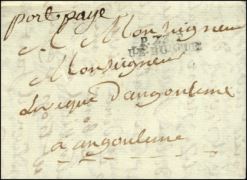 port paye
A Monseigneur
Monseigneur
Leveque d'angouleme
a angouleme